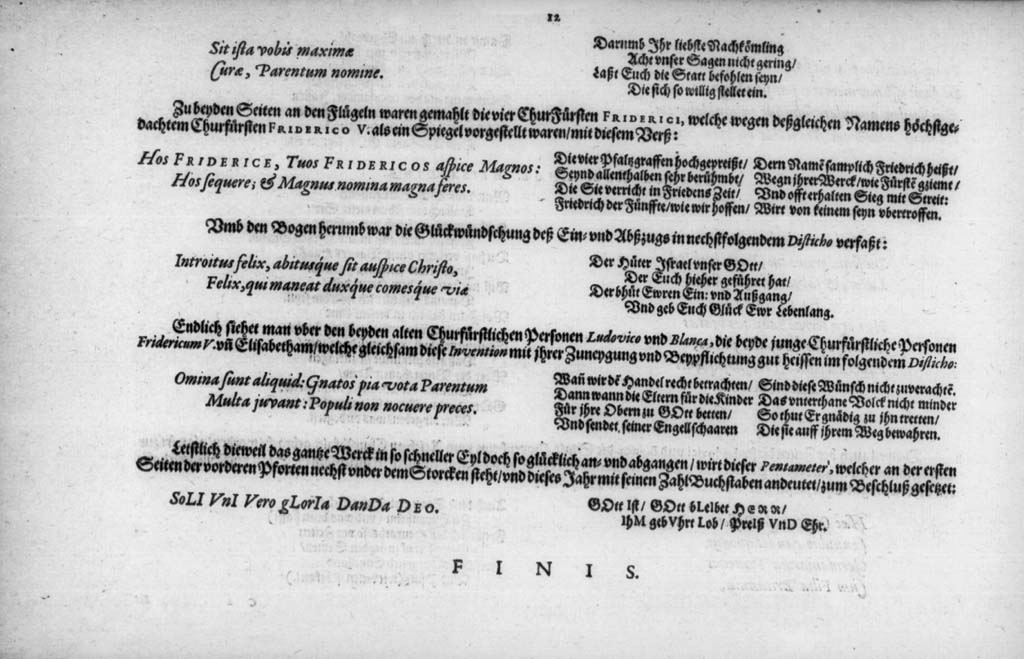 12
Sit ista vobis maximæ
Curæ, Parentum nomine.
Darumb Ihr liebste Nachkömling
Acht vnser Sagen nicht gering/
Laßt Euch die Statt befohlen seyn/
Die sich so willig stellet ein.
Zu beyden Seiten an den Flügeln waren gemahlt die vier ChurFürsten FRIDERICI, welche wegen deßgleichen Namens höchstge-
dachtem Churfürsten FRIDERICO V. als ein Spiegel vorgestellt waren/mit diesem Verß:
Hos FRIDERICE, Tuos FRIDERICOS aspice Magnos:
Hos sequere; & Magnus nomina magna feres.
Die vier Pfaltzgraffen hochgepreißt/
Seynd allenthalben sehr berühmbt/
Die Sie verricht in Friedens Zeit/
Friedrich der Fünffte/wie wir hoffen/
Dern Namē samplich Friedrich heißt/
Wegn jhrer Werck/wie Fürstē gziemt/
Vnd offt erhalten Sieg mit Streit:
Wirt von keinem seyn vbertroffen.
Vmb den Bogen herumb war die Glückwündschung deß Ein- vnd Abßzugs in nechstfolgendem Disticho verfaßt:
Introitus felix, abitusque sit auspice Christo,
Felix, qui maneat duxque comesque viæ
Der Hüter Israel vnser GOtt/
Der Euch hieher geführet hat/
Der bhüt Ewren Ein: vnd Außgang/
Vnd geb Euch Glück Ewr Lebenlang.
Endlich siehet man vber den beyden alten Churfürstlichen Personen Ludovico vnd Blanca, die beyde junge Churfürstliche Personen
Fridericum V. vñ Elisabetham/welche gleichsam diese Invention mit jhrer Zuneygung vnd Beypflichtung gut heissen im folgendem Disticho:
Omina sunt aliquid: Gnatos pia vota Parentum
Multa juvant: Populi non nocuere preces.
Wañ wir dē Handel recht betrachten/
Dann wann die Eltern für die Kinder
Für jhre Obern zu GOtt betten/
Vnd sendet seiner Engell schaaren
Sind diese Wünsch nicht zuverachtē.
Das vnterthane Volck nicht minder
So thut Er gnädig zu jhn tretten/
Die sie auff jhrem Weg bewahren.
Letstlich dieweil das gantze Werck in so schneller Eyl doch so glücklich an- vnd abgangen/wirt dieser Pentameter, welcher an der ersten
Seiten der vorderen Pforten nechst vnder dem Storcken steht/vnd dieses Jahr mit seinen Zahl Buchstaben andeutet/zum Beschluß gesetzet:
SoLI VnI Vero gLorIa DanDa DEO.
GOtt Ist/ GOtt bLeIbet HERR/
IhM gebVhrt Lob/ PreIß VnD Ehr.
FINIS.